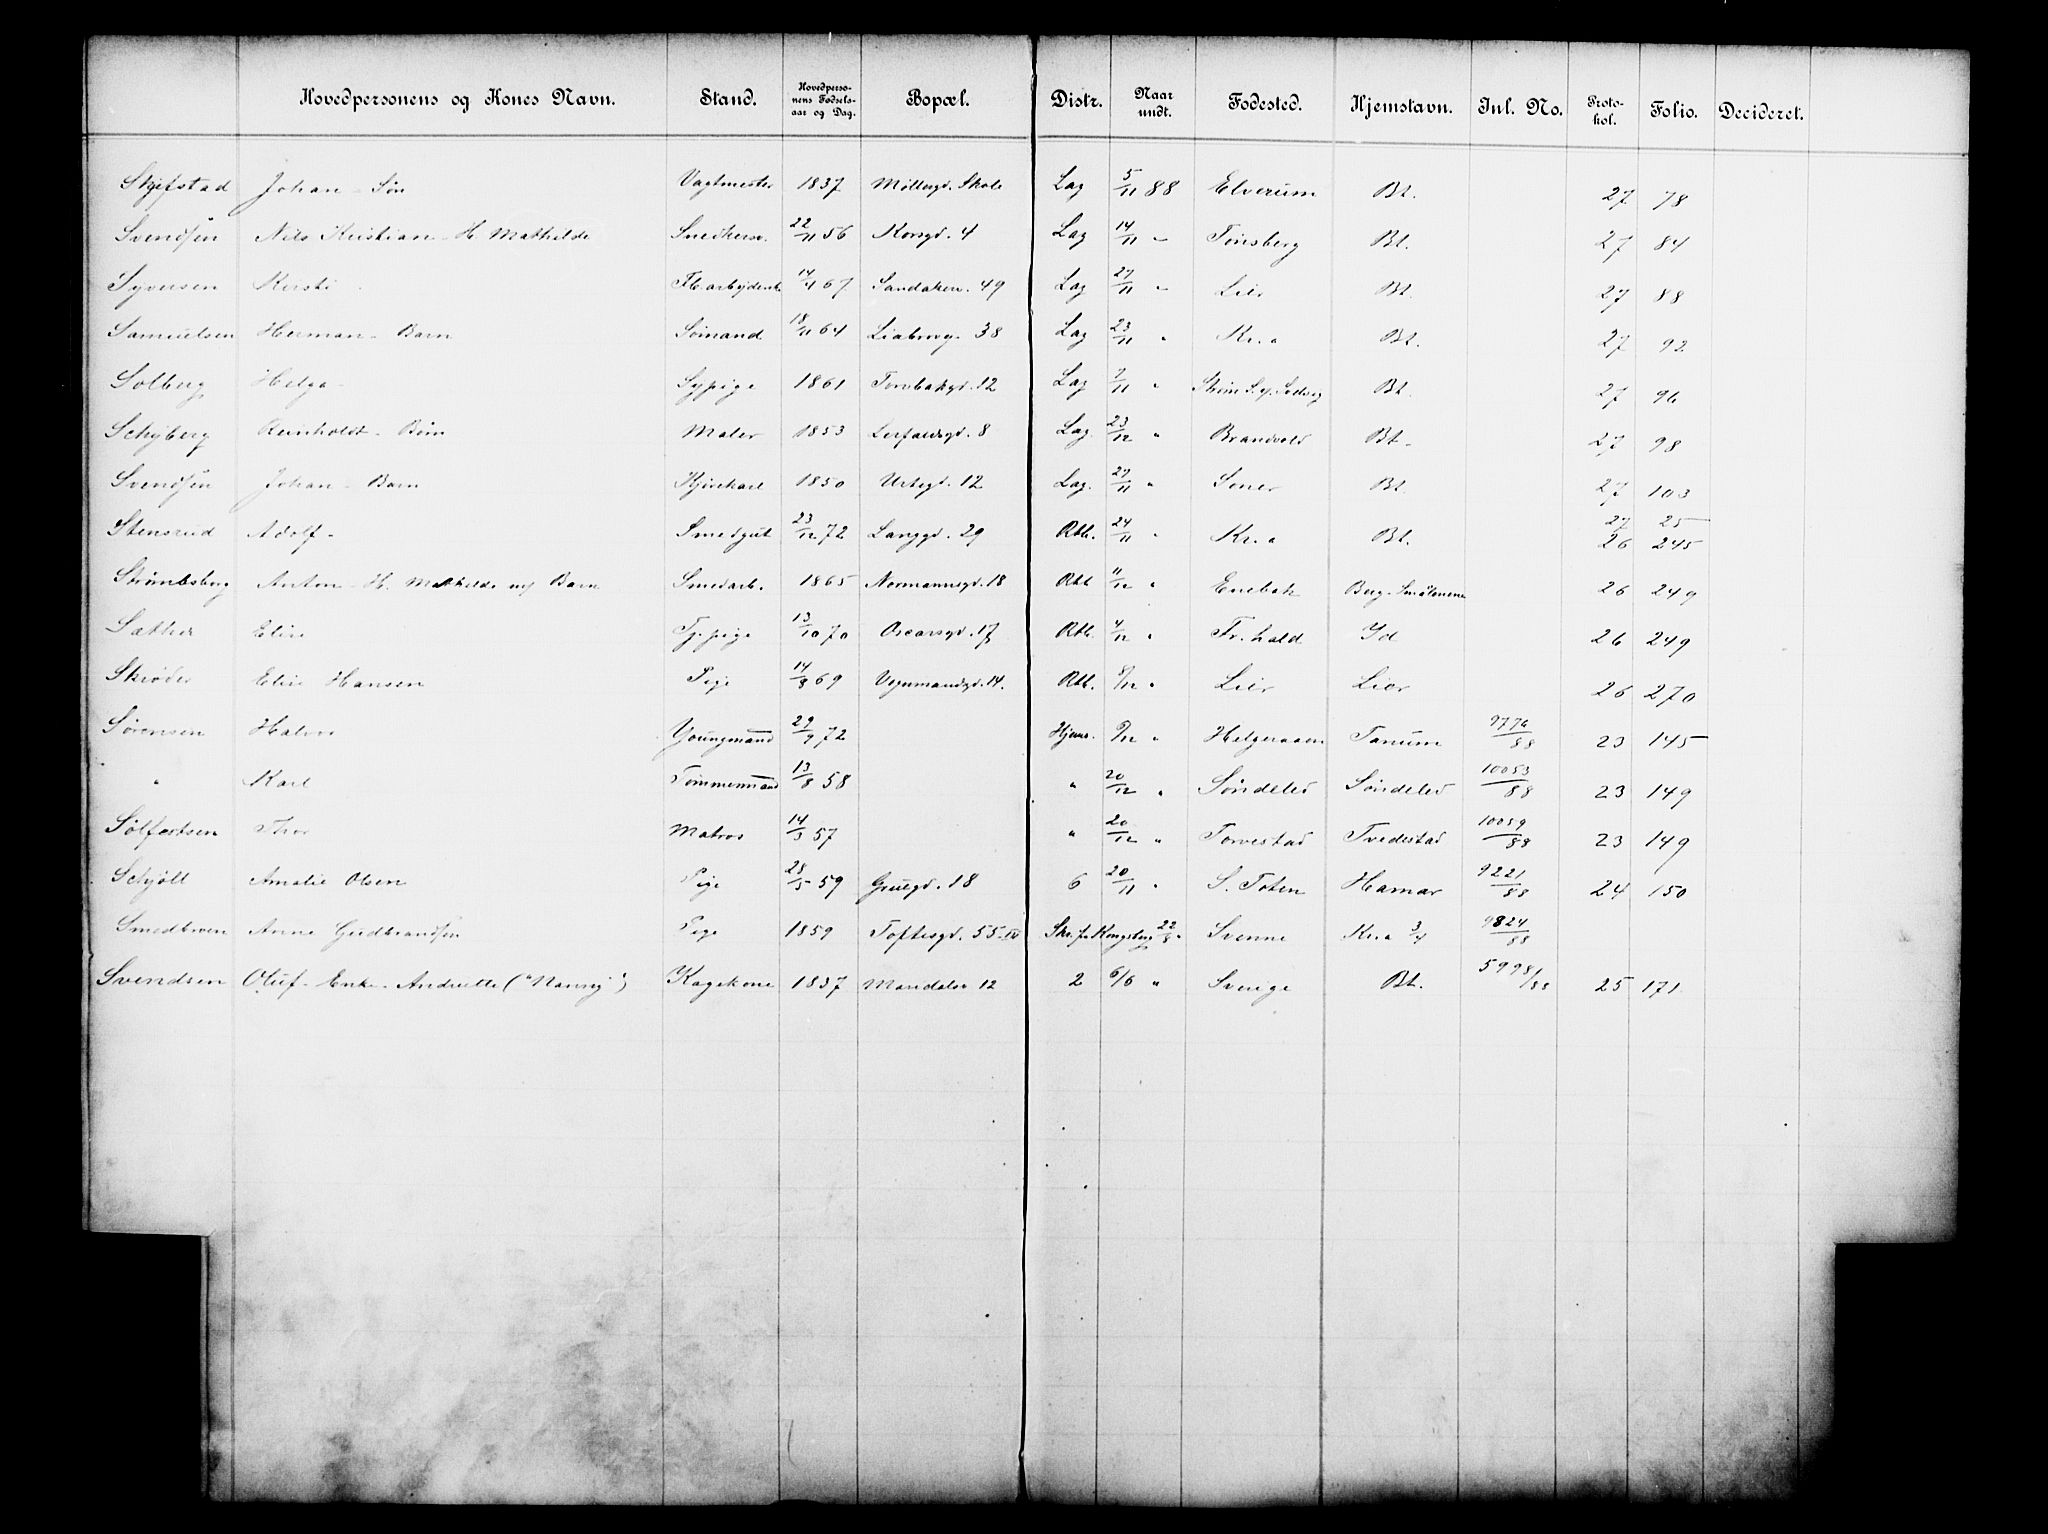 Hovedpersonens og Kones Navn. Stand. Hovedpersonens Fødselsaar og Dag. Bopæl. Distr. Naar undt. Fødested. Hjemstavn. Inl. No. Protokol. Folio. Decideret.
Skjefstad Johan - Søn Vagtmester 1837 Møllergd. Skole Lag 5/11 88 Elverum Bt. 27 78
Svendsen Nils Kristian - H. Mathilde Snedkersv. 22/11 56 Korsgd. 4 Lag 14/11 " Tønsberg Bt. 27 84
Syversen Kirsti 14/4 67 Sandakerv. 49 Lag 27/11 " Lier Bt. 27 88
Samuelsen Herman - Barn Sømand 18/11 64 Liabrovg. 38 Lag 23/11 " Kr.a Bt. 27 92
Solberg Helga - Sypige 1861 Tornbakgd. 12 Lag 7/11 " Bt. 27 96
Schyberg Reinholdt - Børn Maler 1853 Lerfaldsgd. 8 Lag. 23/12 " Brandvold Bt. 27 98
Svendsen Johan - Barn Kjørekarl 1850 Urtegd. 12 Lag. 27/11 " Bt. 27 103
Stensrud Adolf - Smedgut 23/12 72 Langgd. 29 Rtb. 24/11 " Kr.a Bt. 27 25
26 245
Strømbsberg Anton - H. Mathilde m/ Barn Smedarb. 1865 Normannsgd. 18 Rtb 11/12 " Enebak Berg. Smålenene 26 249
Sæther Elise Tj.pige 13/10 70 Oscarsgd. 17 Rtb. 4/12 " Fr.hald Id 26 249
Skrøder Elise Hansen Pige 14/8 69 Vognmandsgd. 14. Rtb. 8/12 " Lier Lier 26 270
Sørensen Halvor Youngmand 29/9 72 Hjems. 9/12 " Helgeraaen Tanum 9776/88 23 145
" Karl Tømmermand 13/8 58 " 20/12 " Søndeled Søndeled 10053/88 23 149
Sølfestsen Thor Matros 14/3 57 " 20/12 " Torvestad Tvedestad 10059/88 23 149
Schjøll Amalie Olsen Pige 28/5 59 Gruegd. 18 6 20/11 " S. Toten Hamar 9221/88 24 150
Anne Gudbrandsen Pige 1859 Toftesgd. 55 IV Skr. f. Kongsberg 22/8 " Svenne Kr.a 3/4 9824/88
Svendsen Oluf - Enke - Andrette ("Nanny") Kagekone 1837 Mandalsv 12 2 6/6 " Sverige Bt. 5998/88 25 171